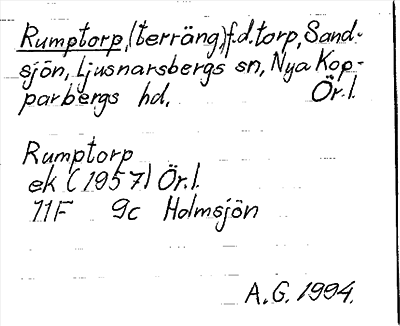 Rumptorp, (terräng), f.d. torp, Sand-
sjön, Ljusnarsbergs sn, Nya Kop-
parbergs hd, Ör. l.
Rumptorp
ek (1957) Ör. l.
11F 9c Holmsjön
A.G. 1994.